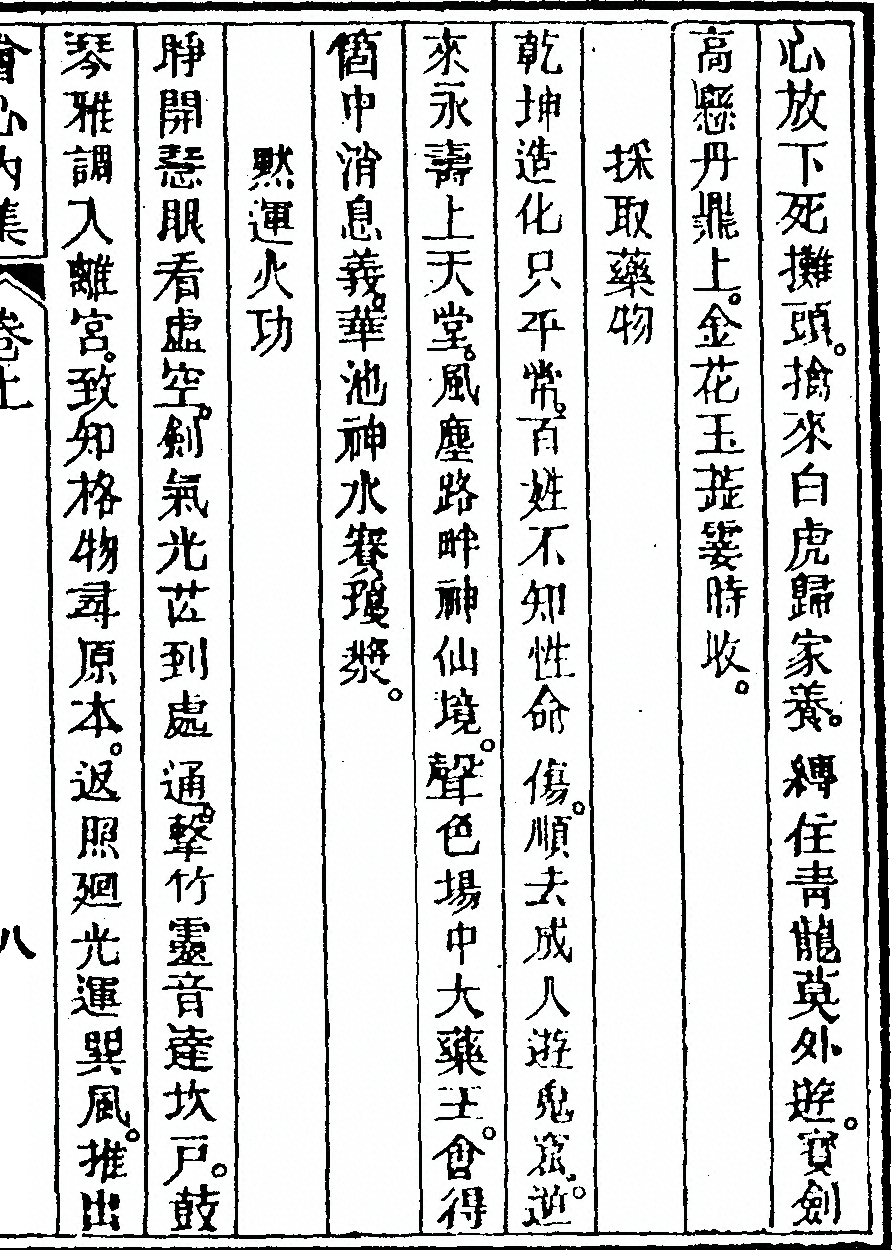 心放下死攤頭。擒來白虎歸家養。縛住青龍莫外遊。寶劍
高懸丹鼎上。金花玉蕋霎時收。
採取藥物
乾坤造化只平常。百姓不知性命傷。順去成人遊鬼窟。逆
來永壽上天堂。風塵路畔神仙境。聲色場中大藥王。會得
箇中消息義。華池神水賽瓊漿。
默運火功
睜開慧眼看虛空。劍氣光芒到處通。擊竹靈音達坎戶。鼓
琴雅調入離宮。致知格物尋原本。返照廻光運巽風。推出
會心內集
卷上
八